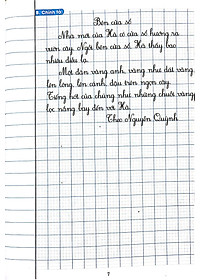 B. Chính tả
Bên cửa sổ
Nhà mới của Hà có cửa sổ hướng ra
vườn cây. Ngồi bên cửa sổ, Hà thấy bao
nhiêu điều lạ.
Một đàn vàng anh, vàng như dát vàng
lên lông, lên cánh, đậu trên ngọn cây.
Tiếng hót của chúng như những chuỗi vàng
lọc nắng bay đến với Hà.
Theo Nguyễn Quỳnh
7